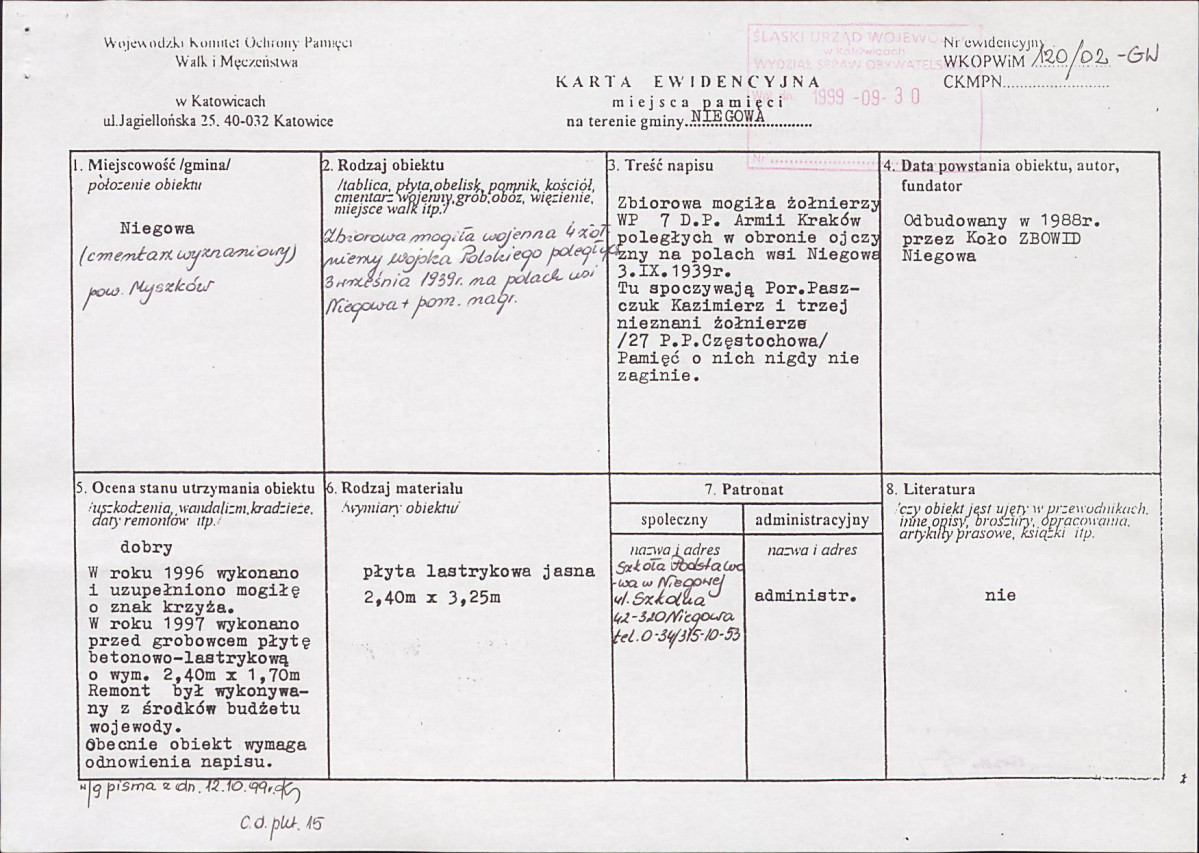 Wojewódzki Komitet Ochrony Pamięci
Walk i Męczeństwa
w Katowicach
ul.Jagiellońska 25. 40-032 Katowice
KARTA EWIDENCYJNA
miejsca pamięci
na terenie gminy NIEGOWA
ŚLĄSKI URZĄD WOJEWO
w Katowicach
WYDZIAŁ SPRAW OBYWATELS
1999 -09- 30
Nr
Nr ewidencyjny
WKOPWiM 120/02 -GW
CKMPN
1. Miejscowość /gmina/
położenie obiektu
Niegowa
(cmentarz wyznaniowy)
pow. Myszków
2. Rodzaj obiektu
/tablica, płyta,obelisk, pomnik, kościół,
cmentarz wojenny,grób,obóz, więzienie,
miejsce walk itp./
Zbiorowa mogiła wojenna 4 żoł
nierzy Wojska Polskiego poległych
3 września 1939r. na polach wsi
Niegowa + pom. nagr.
3. Treść napisu
Zbiorowa mogiła żołnierzy
WP 7 D.P. Armii Kraków
poległych w obronie ojczy
zny na polach wsi Niegowa
3.IX.1939r.
Tu spoczywają Por.Pasz-
czuk Kazimierz i trzej
nieznani żołnierze
/27 P.P.Częstochowa/
Pamięć o nich nigdy nie
zaginie.
4. Data powstania obiektu, autor,
fundator
Odbudowany w 1988r.
przez Koło ZBOWID
Niegowa
5. Ocena stanu utrzymania obiektu
/uszkodzenia, wandalizm,kradzieże,
daty remontów itp./
dobry
W roku 1996 wykonano
i uzupełniono mogiłę
o znak krzyża.
W roku 1997 wykonano
przed grobowcem płytę
betonowo-lastrykową
o wym. 2,40m x 1,70m
Remont był wykonywa-
ny z środków budżetu
wojewody.
Obecnie obiekt wymaga
odnowienia napisu.
6. Rodzaj materiału
/wymiary obiektu/
płyta lastrykowa jasna
2,40m x 3,25m
7. Patronat
społeczny
nazwa i adres
Szkoła Podstawo
-wa w Niegowej
ul. Szkolna
42-320 Niegowa
tel. 0-34/315-10-53
administracyjny
nazwa i adres
administr.
8. Literatura
/czy obiekt jest ujęty w przewodnikach,
inne opisy, broszury, opracowania,
artykuły prasowe, książki itp.
nie
w/g pisma z dn. 12.10.99r.
c.d. pkt. 15